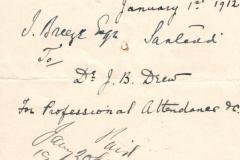 January 1st 1912
J. Breeze Esqr Santedd
To
Dr J. B. Drew
For Professional Attendance &c.
Paid
Jany 20th